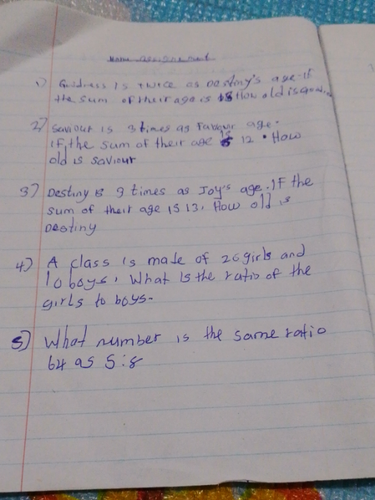 Home assignment
1) Goodness is twice as Destiny's age. If
the sum of their age is 15 How old is
2) Saviour is 3 times as Favour age.
If the sum of their age is 12. How
old is saviour
3) Destiny is 9 times as Joy's age. If the
sum of their age is 13, How old is
Destiny
4) A class is made of 26 girls and
10 boys, What is the ratio of the
girls to boys.
5) What number is the same ratio
64 as 5:8